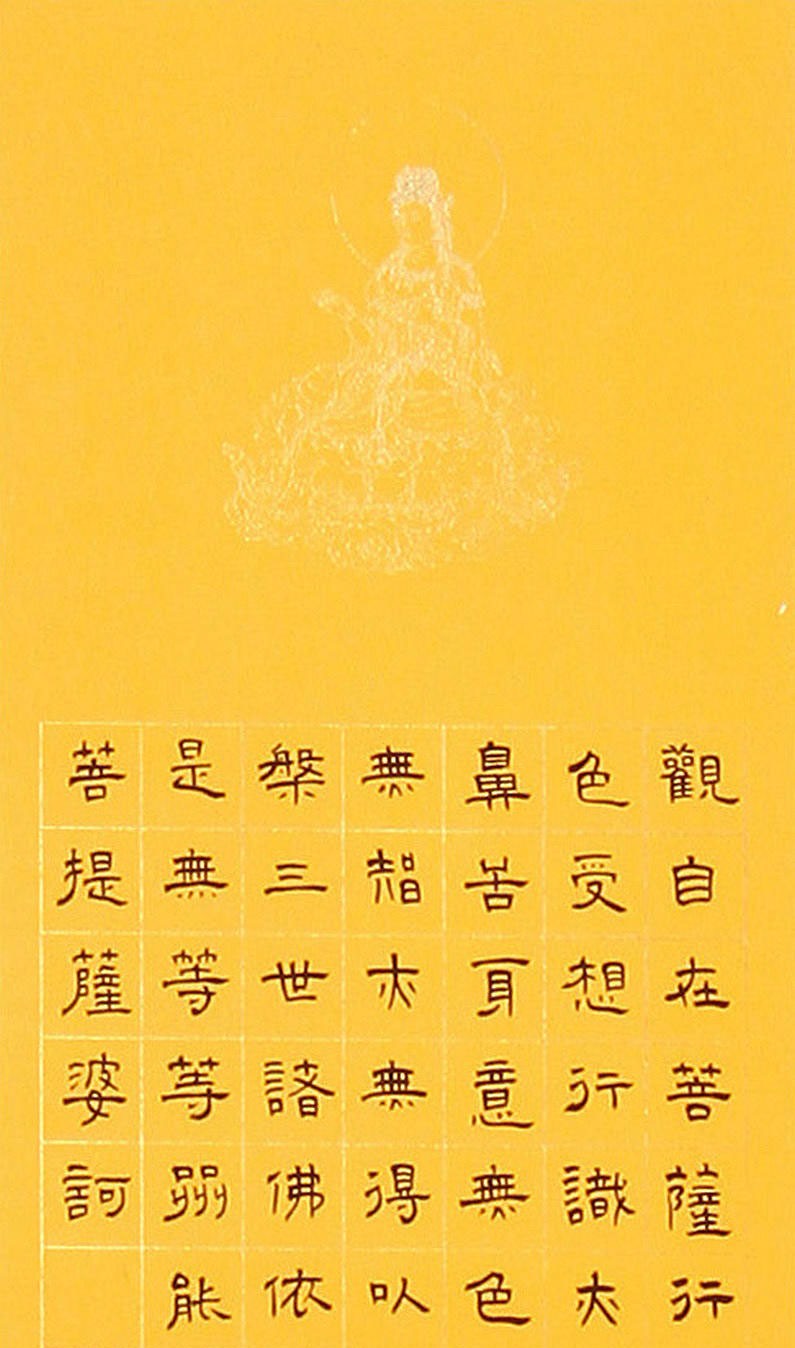 觀自在菩薩行
色受想行識亦
鼻舌身意無色
無智亦無得以
槃三世諸佛依
是無等等咒能
菩提薩婆訶